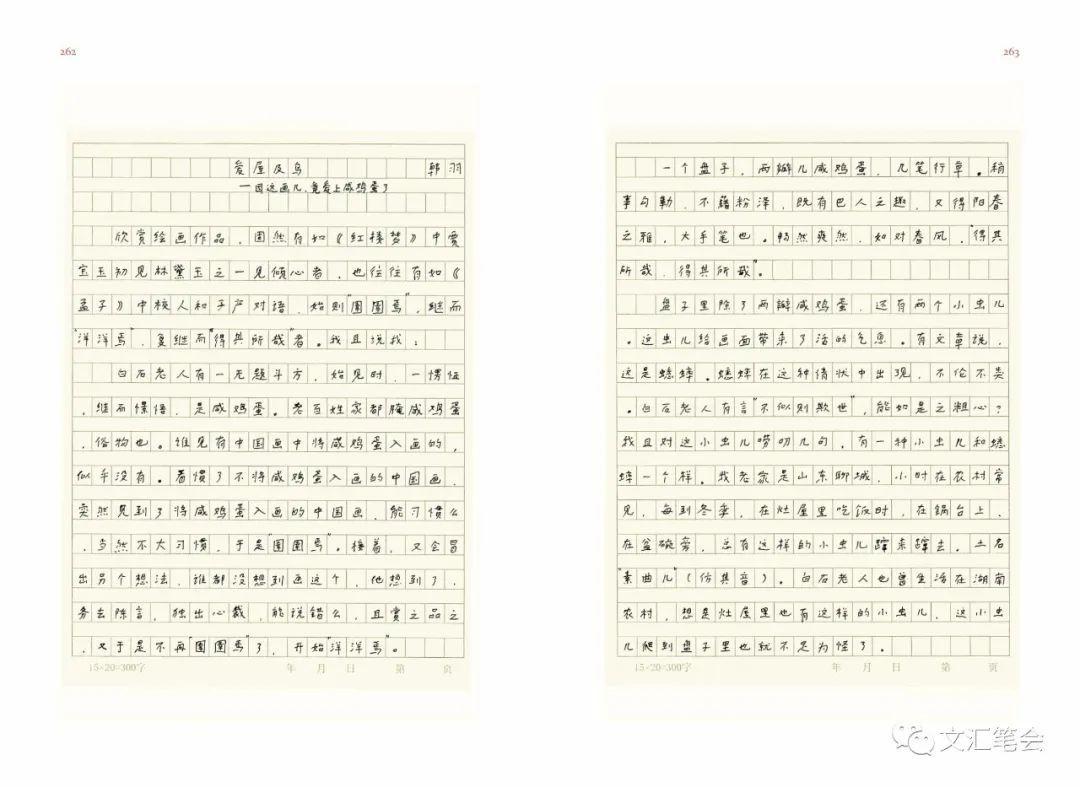 262
爱屋及乌 韩羽
一因这画儿,竟爱上咸鸡蛋了
欣赏绘画作品,固然有如《红楼梦》中贾
宝玉初见林黛玉之一见倾心者,也往往有如《
孟子》中校人和子产对语,始则“圉圉焉”,继而
“洋洋焉”,复继而“得其所哉”者。我且说我:
白石老人有一无题斗方,始见时,一愣怔
,继而憬悟,是咸鸡蛋。老百姓家都腌咸鸡蛋
,俗物也。谁见有中国画中将咸鸡蛋入画的,
似乎没有。看惯了不将咸鸡蛋入画的中国画,
突然见到了将咸鸡蛋入画的中国画,能习惯么
,当然不大习惯,于是“圉圉焉”。接着,又会冒
出另个想法,谁都没想到画这个,他想到了,
务去陈言,独出心裁,能说错么,且赏之品之
,又于是不再“圉圉焉”了,开始“洋洋焉”。
15×20=300字 年 月 日 第 页
263
一个盘子,两瓣儿咸鸡蛋,几笔行草。稍
事勾勒,不藉粉泽,既有巴人之趣,又得阳春
之雅,大手笔也。畅然爽然,如对春风,“得其
所哉,得其所哉”。
盘子里除了两瓣咸鸡蛋,还有两个小虫儿
。这虫儿给画面带来了活的气息。有文章说,
这是蟋蟀。蟋蟀在这种情状中出现,不伦不类
。白石老人有言“不似则欺世”,能如是之粗心?
我且对这小虫儿唠叨几句,有一种小虫儿和蟋
蟀一个样。我老家是山东聊城,小时在农村常
见,每到冬季,在灶屋里吃饭时,在锅台上,
在盆碗旁,总有这样的小虫儿蹿来蹿去。土名
“素曲儿”(仿其音)。白石老人也曾生活在湖南
农村,想是灶屋里也有这样的小虫儿,这小虫
儿爬到盘子里也就不足为怪了。
15×20=300字 年 月 日 第 页
文汇笔会